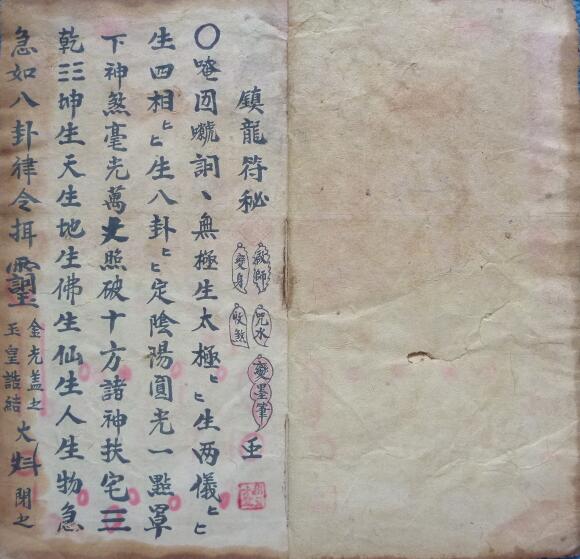 鎮龍符秘 敕師 變身 咒水 收煞 變墨筆
〇唵囙㘕詞丶無極生太極〻生两儀〻
生四相〻生八卦〻定陰陽圓光一點罩
下神煞毫光萬丈照破十方諸神扶宅三
乾三坤生天生地生佛生仙生人生物急
急如八卦律令揖
金光盖之
玉皇誥結
火
閉之